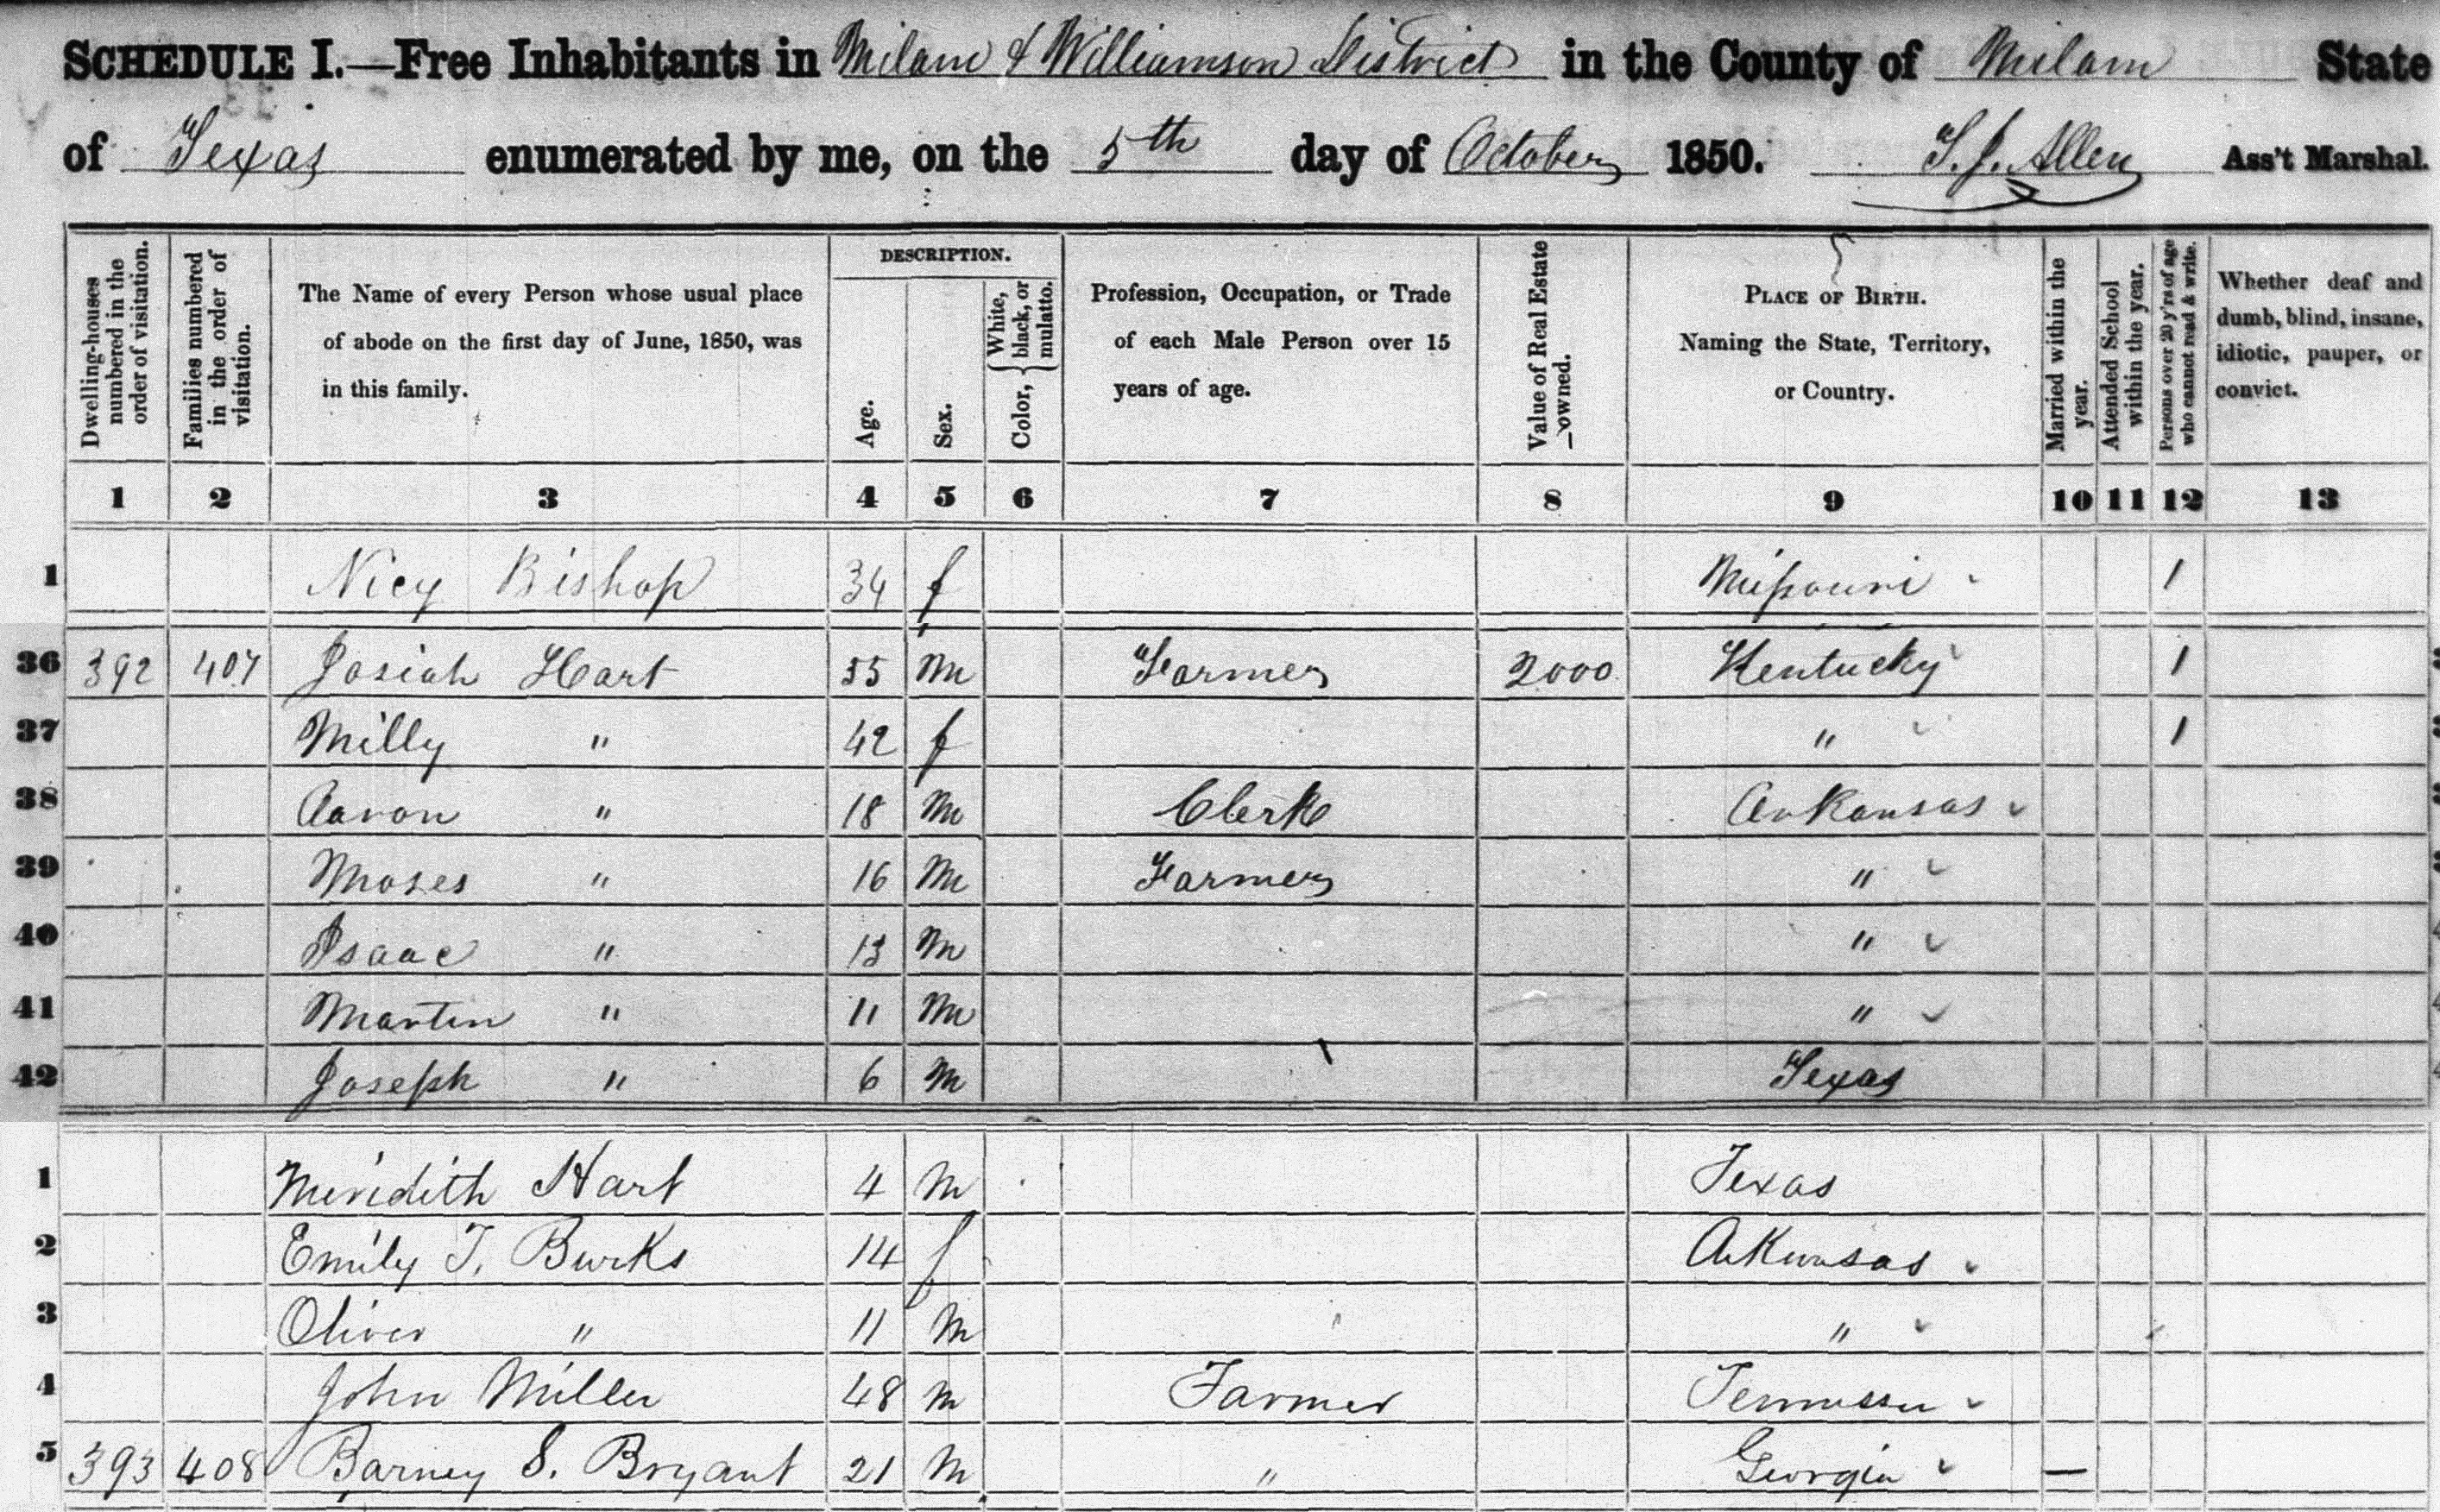 SCHEDULE I.—Free Inhabitants in Milam & Williamson District in the County of Milam State
of Texas enumerated by me, on the 5th day of October 1850. Ass't Marshal.
Dwelling-houses numbered in the order of visitation.
Families numbered in the order of visitation.
The Name of every Person whose usual place of abode on the first day of June, 1850, was in this family.
DESCRIPTION.
Age.
Sex.
Color, { White, black, or mulatto.
Profession, Occupation, or Trade of each Male Person over 15 years of age.
Value of Real Estate owned.
PLACE OF BIRTH. Naming the State, Territory, or Country.
Married within the year.
Attended School within the year.
Persons over 20 y'rs of age who cannot read & write.
Whether deaf and dumb, blind, insane, idiotic, pauper, or convict.
1 2 3 4 5 6 7 8 9 10 11 12 13
1 Nicy Bishop 34 f Missouri 1
36 392 407 Josiah Hart 55 M Farmer 2000 Kentucky 1
37 Milly " 42 f " 1
38 Aaron " 18 M Clerk Arkansas
39 Moses " 16 M Farmer "
40 Isaac " 13 M "
41 Martin " 11 M "
42 Joseph " 6 M Texas
1 Meridith Hart 4 M Texas
2 Emily T. Burks 14 f Arkansas
3 Oliver " 11 M "
4 John Miller 48 M Farmer Tennessee
5 393 408 Barney S. Bryant 21 M " Georgia —